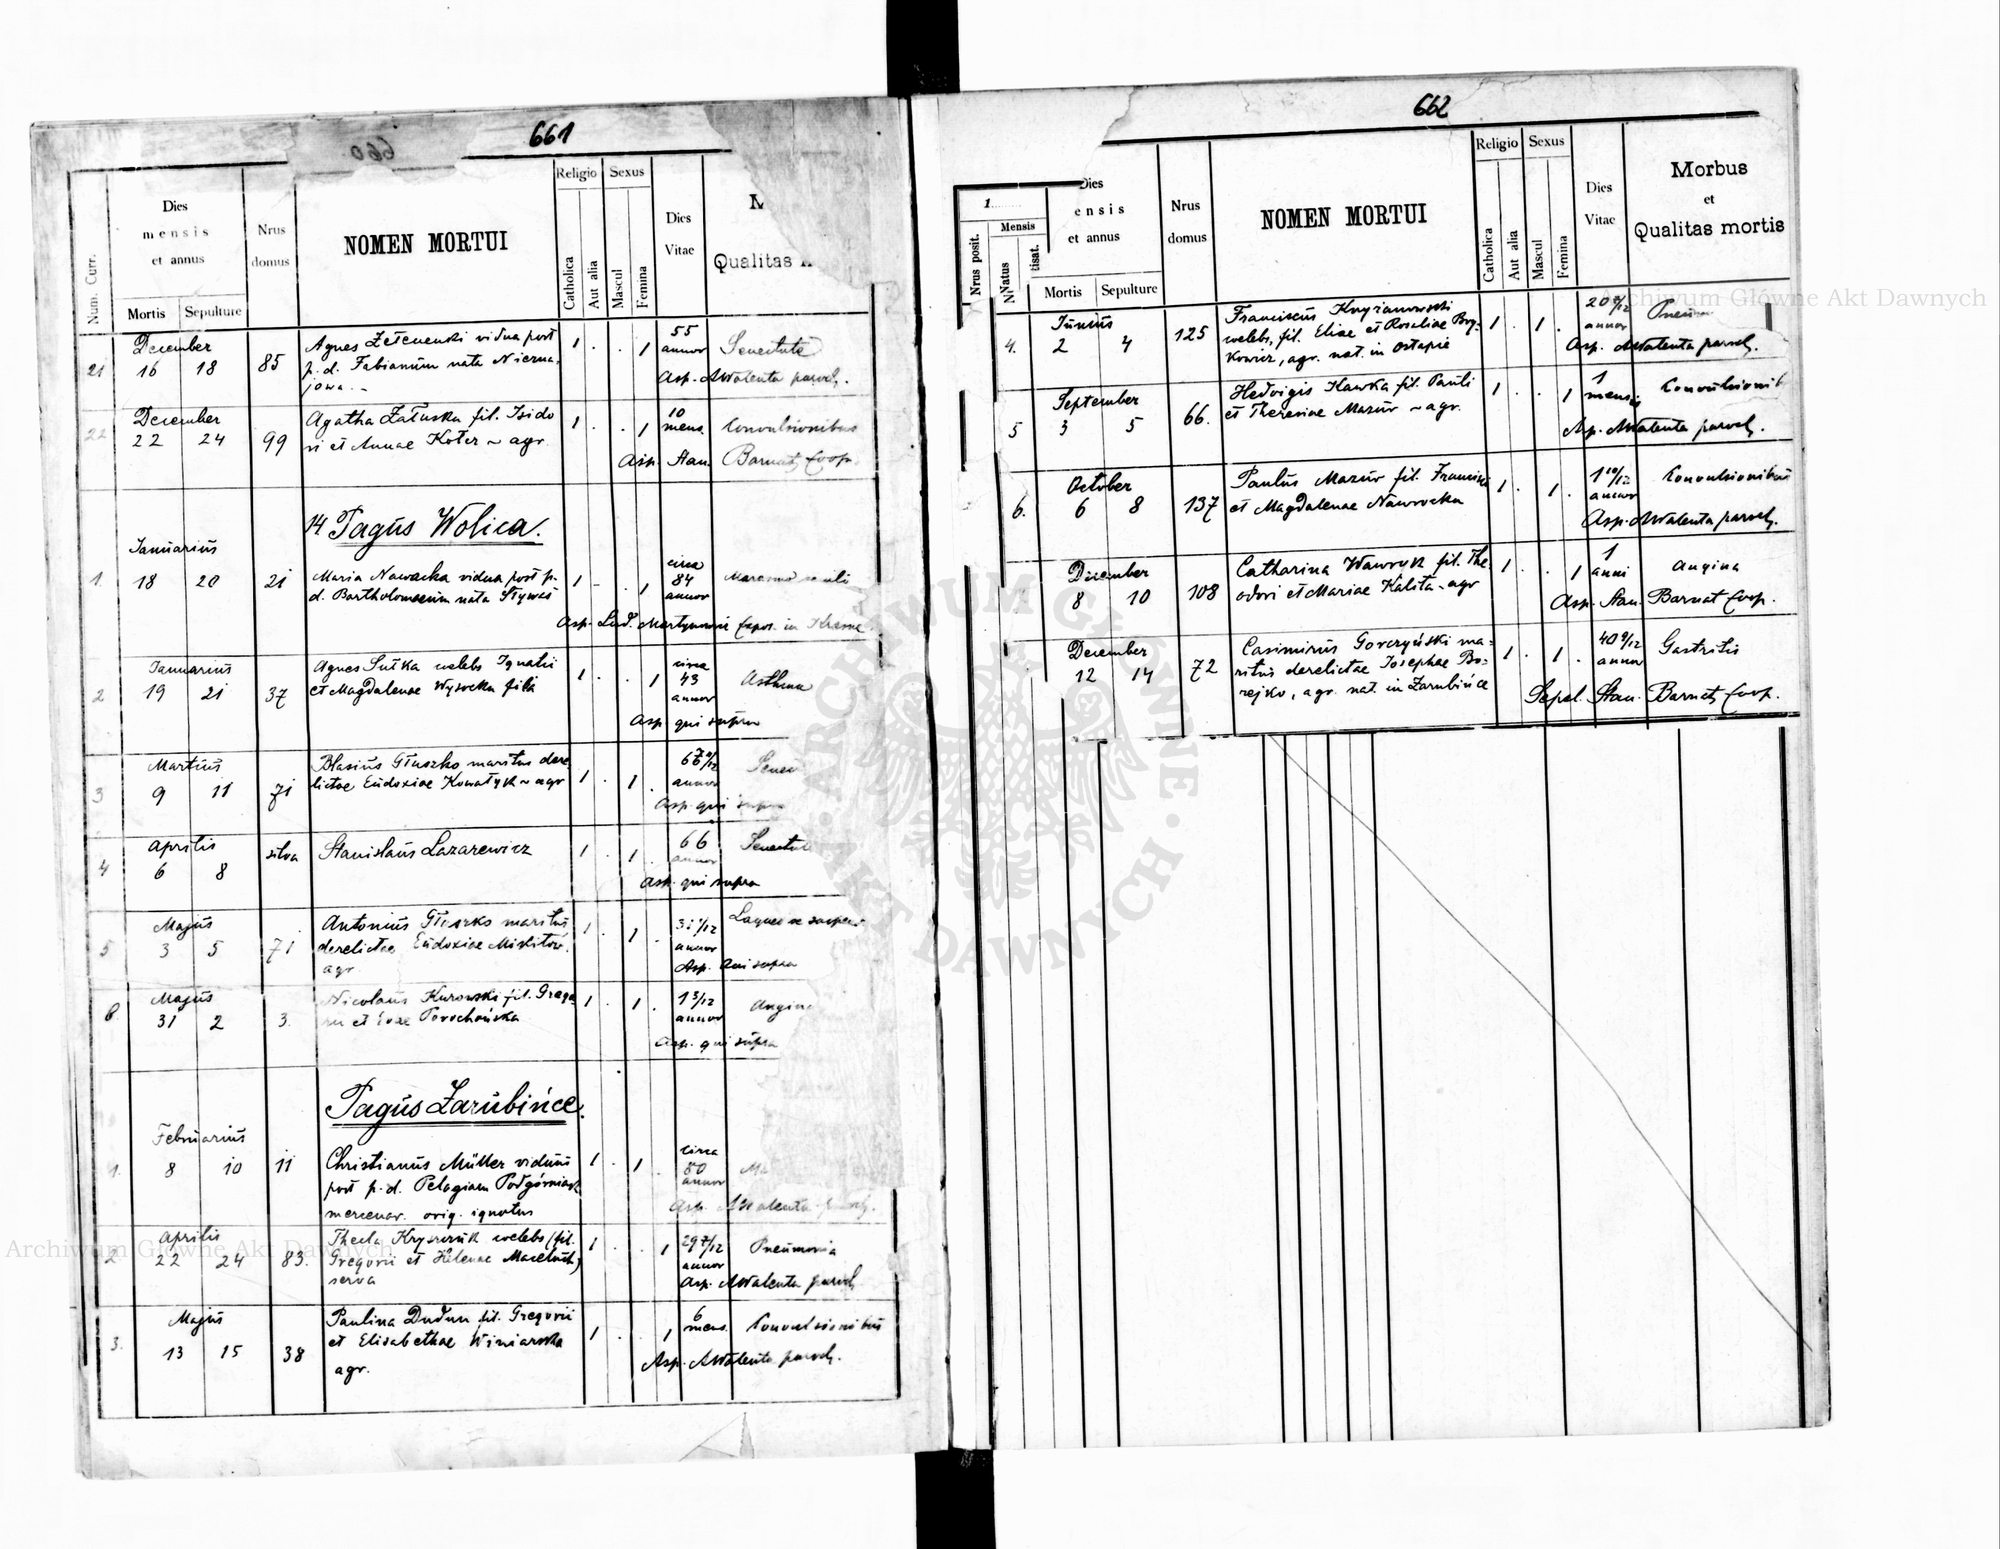 661
Num. Curr.
Dies
mensis
et annus
Mortis
Sepulture
Nrus
domus
NOMEN MORTUI
Religio
Catholica
Aut alia
Sexus
Mascul
Femina
Dies
Vitae
Qualitas
21
December
16 18
85
Agnes vidua post
p. d. Fabianum nata
1 . . 1
55
annor
Senectute
Asp. AWalenta paroch.
22
December
22 24
99
Agatha Załuska fil. Isido
ri et Annae Koter ~ agr.
1 . . 1
10
mens.
Convulsionibus
Asp. Stan. Barnat Coop.
14 Pagus Wolica.
1.
Januarius
18 20
21
Maria Nowacka vidua post p.
d. Bartholomaeum nata
1 . . 1
circa
84
annor
Asp. Lud. Expos. in Krasne
2
Januarius
19 21
37
Agnes Sutka celebs Ignatii
et Magdalenae Wysocka filia
1 . . 1
circa
43
annor
Asthma
Asp. qui supra
3
Martius
9 11
71
Blasius Głuszko maritus dere
lictae Eudoxiae Kowałyk ~ agr
1 . 1 .
annor
Asp. qui supra
4
Aprilis
6 8
silva
Stanislaus Lazarewicz
1 . 1 .
66
annor
Senectute
Asp. qui supra
5
Majus
3 5
71
Antonius maritus
derelictae Eudoxiae
agr.
1 . 1 .
annor
Asp. qui supra
6
Majus
31 2
3.
Nicolaus Kurowski fil. Grego
rii et Evae Porochońska
1 . 1 .
1 3/12
annor
Angina
Asp. qui supra
Pagus Zarubińce.
1.
Februarius
8 10
11
Christianus Müller viduus
post p. d. Pelagiam Podgórniak
mercenar. orig. ignotus
1 . 1 .
circa
80
annor
Asp. AWalenta paroch.
2
Aprilis
22 24
83.
Thecla Kryszczuk celebs (fil.
Gregorii et Helenae
serva
1 . . 1
29 7/12
annor
Pneumonia
Asp. AWalenta paroch
3.
Majus
13 15
38
Paulina Dudun fil. Gregorii
et Elisabethae Winiarska
agr.
1 . . 1
6
mens.
Convulsionibus
Asp. AWalenta paroch.
662
1
Nrus posit.
Mensis
Natus
tisat.
Dies
ensis
et annus
Mortis
Sepulture
Nrus
domus
NOMEN MORTUI
Religio
Catholica
Aut alia
Sexus
Mascul
Femina
Dies
Vitae
Morbus
et
Qualitas mortis
4.
Junius
2 4
125
Franciscus Kryzanowski
celebs, fil. Eliae et Rosaliae Bry-
kowicz, agr. nat. in Ostapie
1 . 1 .
annor
Pneum
Asp. AWalenta paroch.
5
September
3 5
66.
Hedvigis Hawka fil. Pauli
et Theresiae Mazur ~ agr.
1 . . 1
1
mensis
Convulsionib
Asp. AWalenta paroch.
6.
October
6 8
137
Paulus Mazur fil. Francisci
et Magdalenae Nawrocka
1 . 1 .
1 10/12
annor
Convulsionibus
Asp. AWalenta paroch.
December
8 10
108
Catharina Wawryk fil. The
odori et Mariae Kalita ~ agr
1 . . 1
1
anni
Angina
Asp. Stan. Barnat Coop.
December
12 14
72
Casimirus Gorczyński ma-
ritus derelictae Josephae Bo-
rejko, agr. nat. in Zarubińce
1 . 1 .
40 9/12
annor
Gastritis
Sepel. Stan. Barnat Coop.
Archiwum Główne Akt Dawnych
Archiwum Główne Akt Dawnych
ARCHIWUM GŁÓWNE · AKT DAWNYCH ·